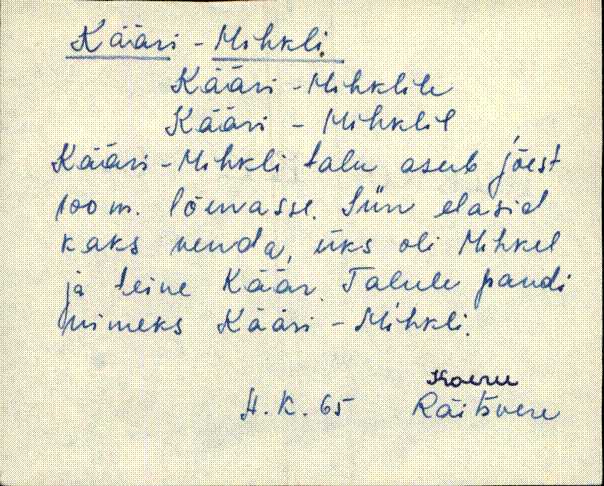 Kääri - Mihkli.
Kääri - Mihklile
Kääri - Mihklil
Kääri - Mihkli talu asub jõest
100 m. lõunasse. Siin elasid
kaks venda, üks oli Mihkel
ja teine Käär. Talule pandi
nimeks Kääri - Mihkli.
Koeru
H. K. 65 Räitsvere